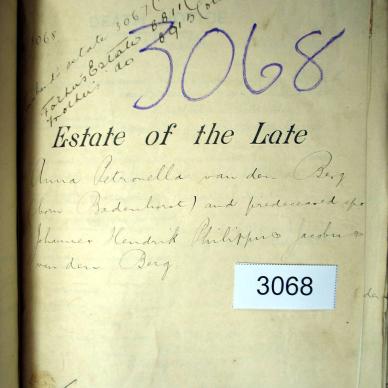 3068
estate 3067
Father's Estate 8811
Mother's do 8913
3068
Estate of the Late
Anna Petronella van den Berg
(born Badenhorst) and predeceased spo
Johannes Hendrik Philippus Jacobus
van den Berg
3068